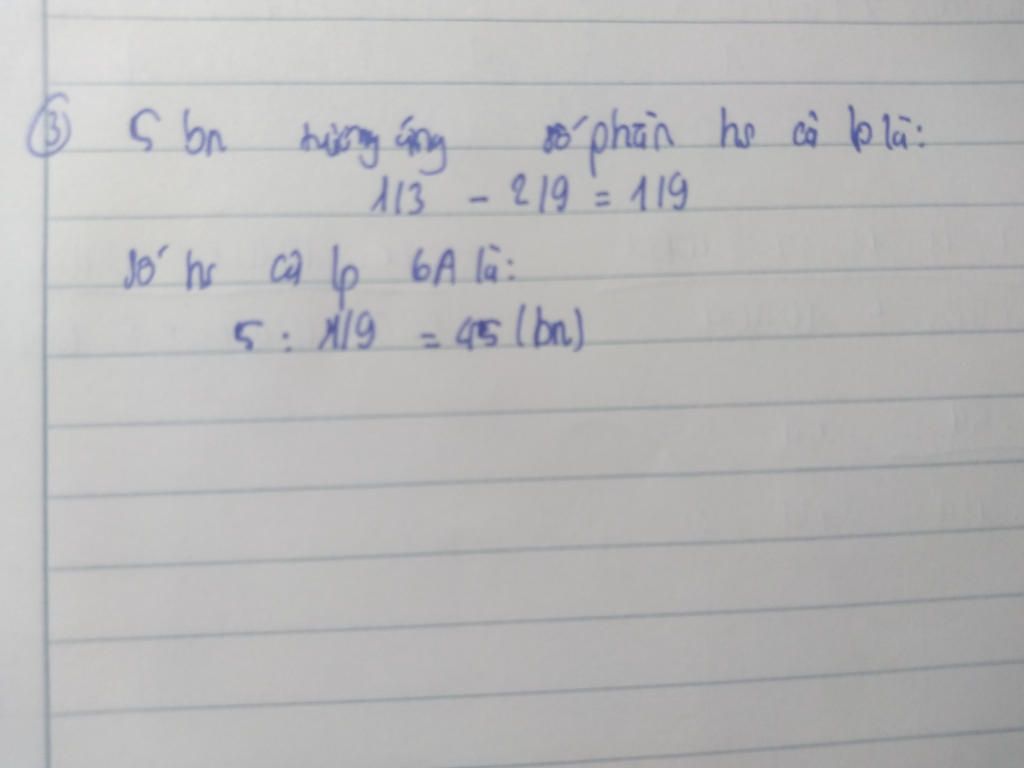 ③ 5 bn tương ứng số phần hs cả lp là:
1/3 - 2/9 = 1/9
số hs cả lp 6A là:
5 : 1/9 = 45 (bn)